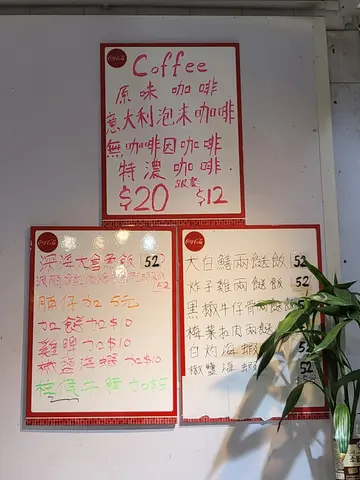 Coca-Cola
Coffee
原味咖啡
意大利泡沫咖啡
無咖啡因咖啡
特濃咖啡
$20 跟餐 $12
Coca-Cola
大會魚飯 52
52
腩仔加5元
加餸加$10
雞髀加$10
椒鹽海蝦加$10
牛 加$5
Coca-Cola
大白鱔兩餸飯 52
炸子雞兩餸飯 52
黑椒牛仔骨兩餸飯
梅菜扣肉兩餸飯
白灼海蝦 52
椒鹽海蝦 52